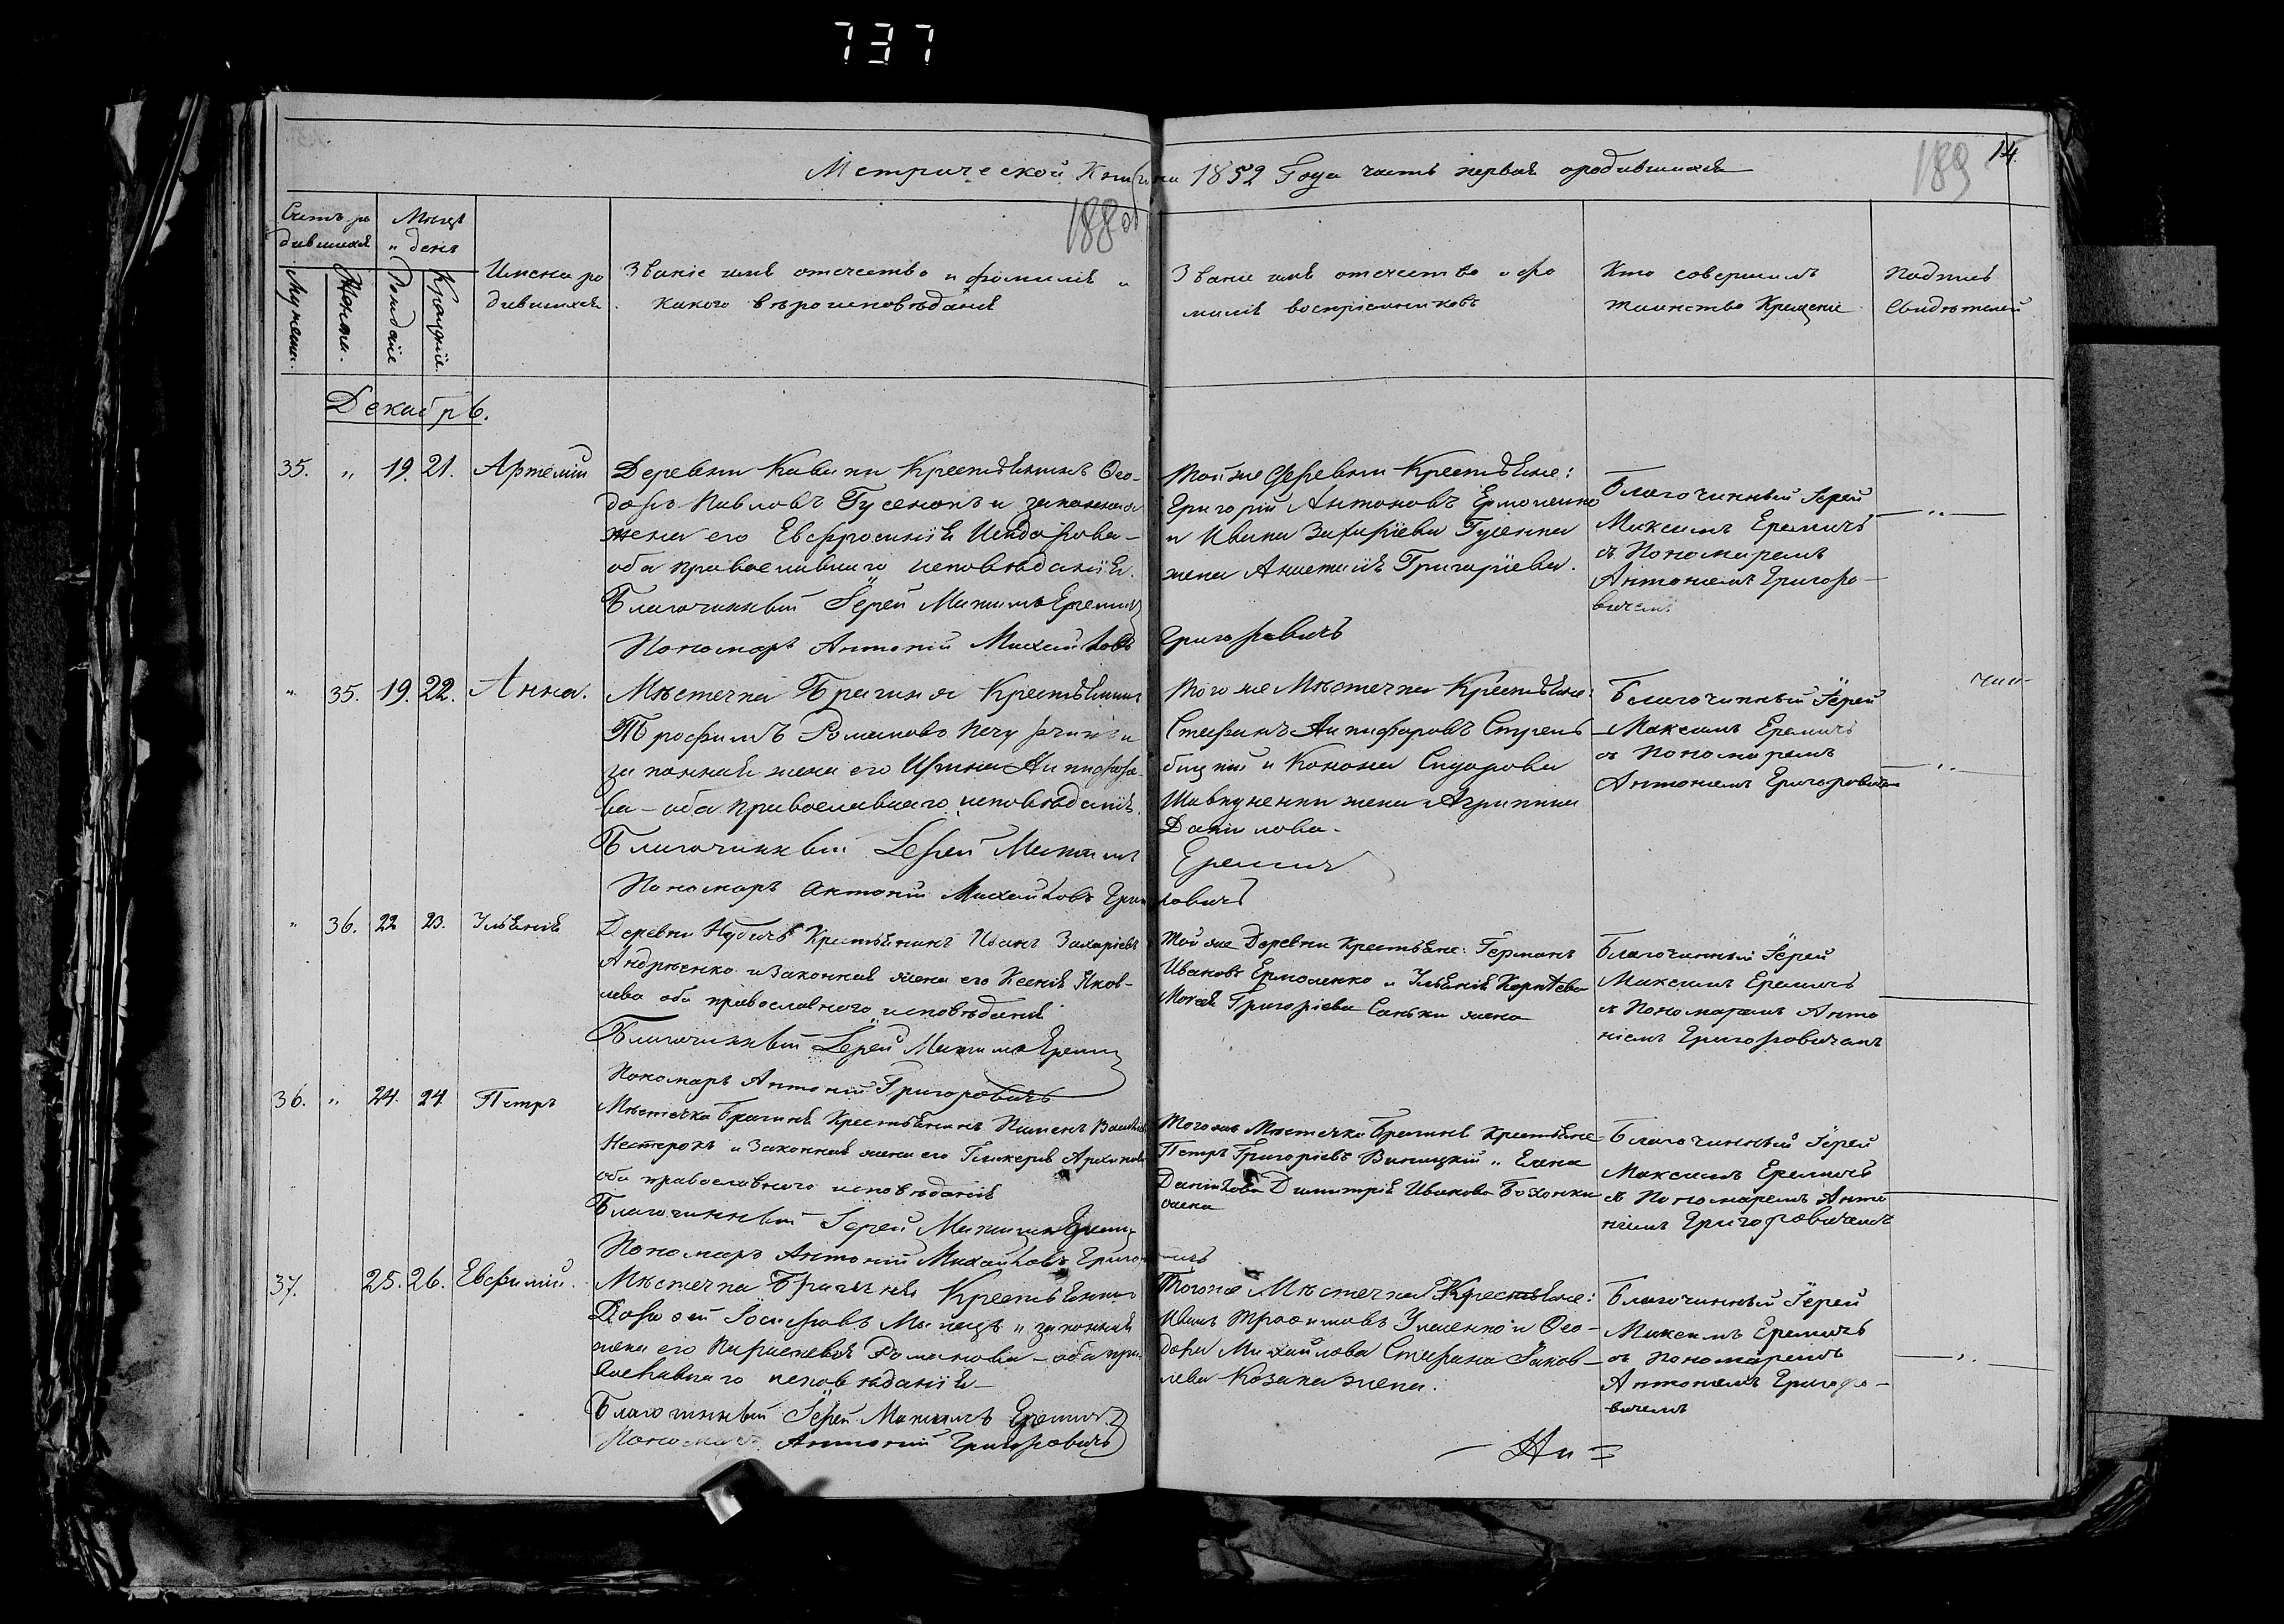 737
Метрической Книги на 1852 Года часть первая о родившихся
188 об
189
14.
Счетъ ро
дившихся
Мужеска.
Женска.
Месяцъ
и день
Рожденіе
Крещеніе.
Имена ро
дившихся
Званіе имя отечество и фамилія и
какого вероисповѣданія
Званіе имя отечество и фа
милія воспріемниковъ
Кто совершилъ
таинство Крещенія
Подпись
Свидѣтелей
Декабрь.
35. " 19. 21. Артемій
Деревни Крестьянинъ Ѳео-
доръ Павловъ Гусенокъ и законная
жена его Евфросинія
оба православнаго исповѣданія.
Благочинный Іерей Максимъ Еремичъ
Пономарь Антоній Михайловъ Григоровичъ
Той же Деревни Крестьяне:
Григорій Антоновъ Ермоленко
и Ивана Захаріева Гусенка
жена Анастасія Григоріева.
Благочинный Іерей
Максимъ Еремичъ
съ Пономаремъ
Антоніемъ Григоро-
вичемъ
" 35. 19. 22. Анна.
Мѣстечка Брагиня Крестьянинъ
Трофимъ Романовъ и
законная жена его Ирина
ва - оба православнаго исповѣданія.
Благочинный Іерей Максимъ Еремичъ
Пономарь Антоній Михайловъ Григоровичъ
Того же Мѣстечка Крестьяне:
Стефанъ
и Конона Сидорова
жена Агрипина
Данилова.
Благочинный Іерей
Максимъ Еремичъ
съ Пономаремъ
Антоніемъ Григоровичемъ
" 36. 22 23. Ульянія
Деревни Крестьянинъ Иванъ Захаріевъ
Андрѣенко и Законная жена его Ксенія Яков-
лева оба православнаго исповѣданія
Благочинный Іерей Максимъ Еремичъ
Пономарь Антоній Григоровичъ
Той же Деревни Крестьяне: Германъ
Ивановъ Ермоленко и Ульянія Корнѣева
Моисея Григоріева Саньки жена
Благочинный Іерей
Максимъ Еремичъ
съ Пономаремъ Анто
ніемъ Григоровичемъ
36. " 24. 24 Петръ
Мѣстечка Брагиня Крестьянинъ Пименъ
Нестерокъ и Законная жена его Гликерія Архипова
оба православнаго исповѣданія
Благочинный Іерей Максимъ Еремичъ
Пономарь Антоній Михайловъ Григоровичъ
Того же Мѣстечка Брагиня Крестьяне
Петръ Григоріевъ Виницкій и Елена
Данилова Димитрія Иванова Бохонки
жена
Благочинный Іерей
Максимъ Еремичъ
съ Пономаремъ Анто
ніемъ Григоровичемъ
37. 25. 26. Евфимій
Мѣстечка Брагиня Крестьянинъ
Дорофей Іосифовъ и законная
жена его Романова - оба пра
вославнаго исповѣданія
Благочинный Іерей Максимъ Еремичъ
Пономарь Антоній Григоровичъ
Того же Мѣстечка Крестьяне:
Иванъ Трофимовъ и Ѳео-
дора Михайлова Стефана Яков-
лева Козака жена.
Благочинный Іерей
Максимъ Еремичъ
съ Пономаремъ
Антоніемъ Григоро-
вичемъ